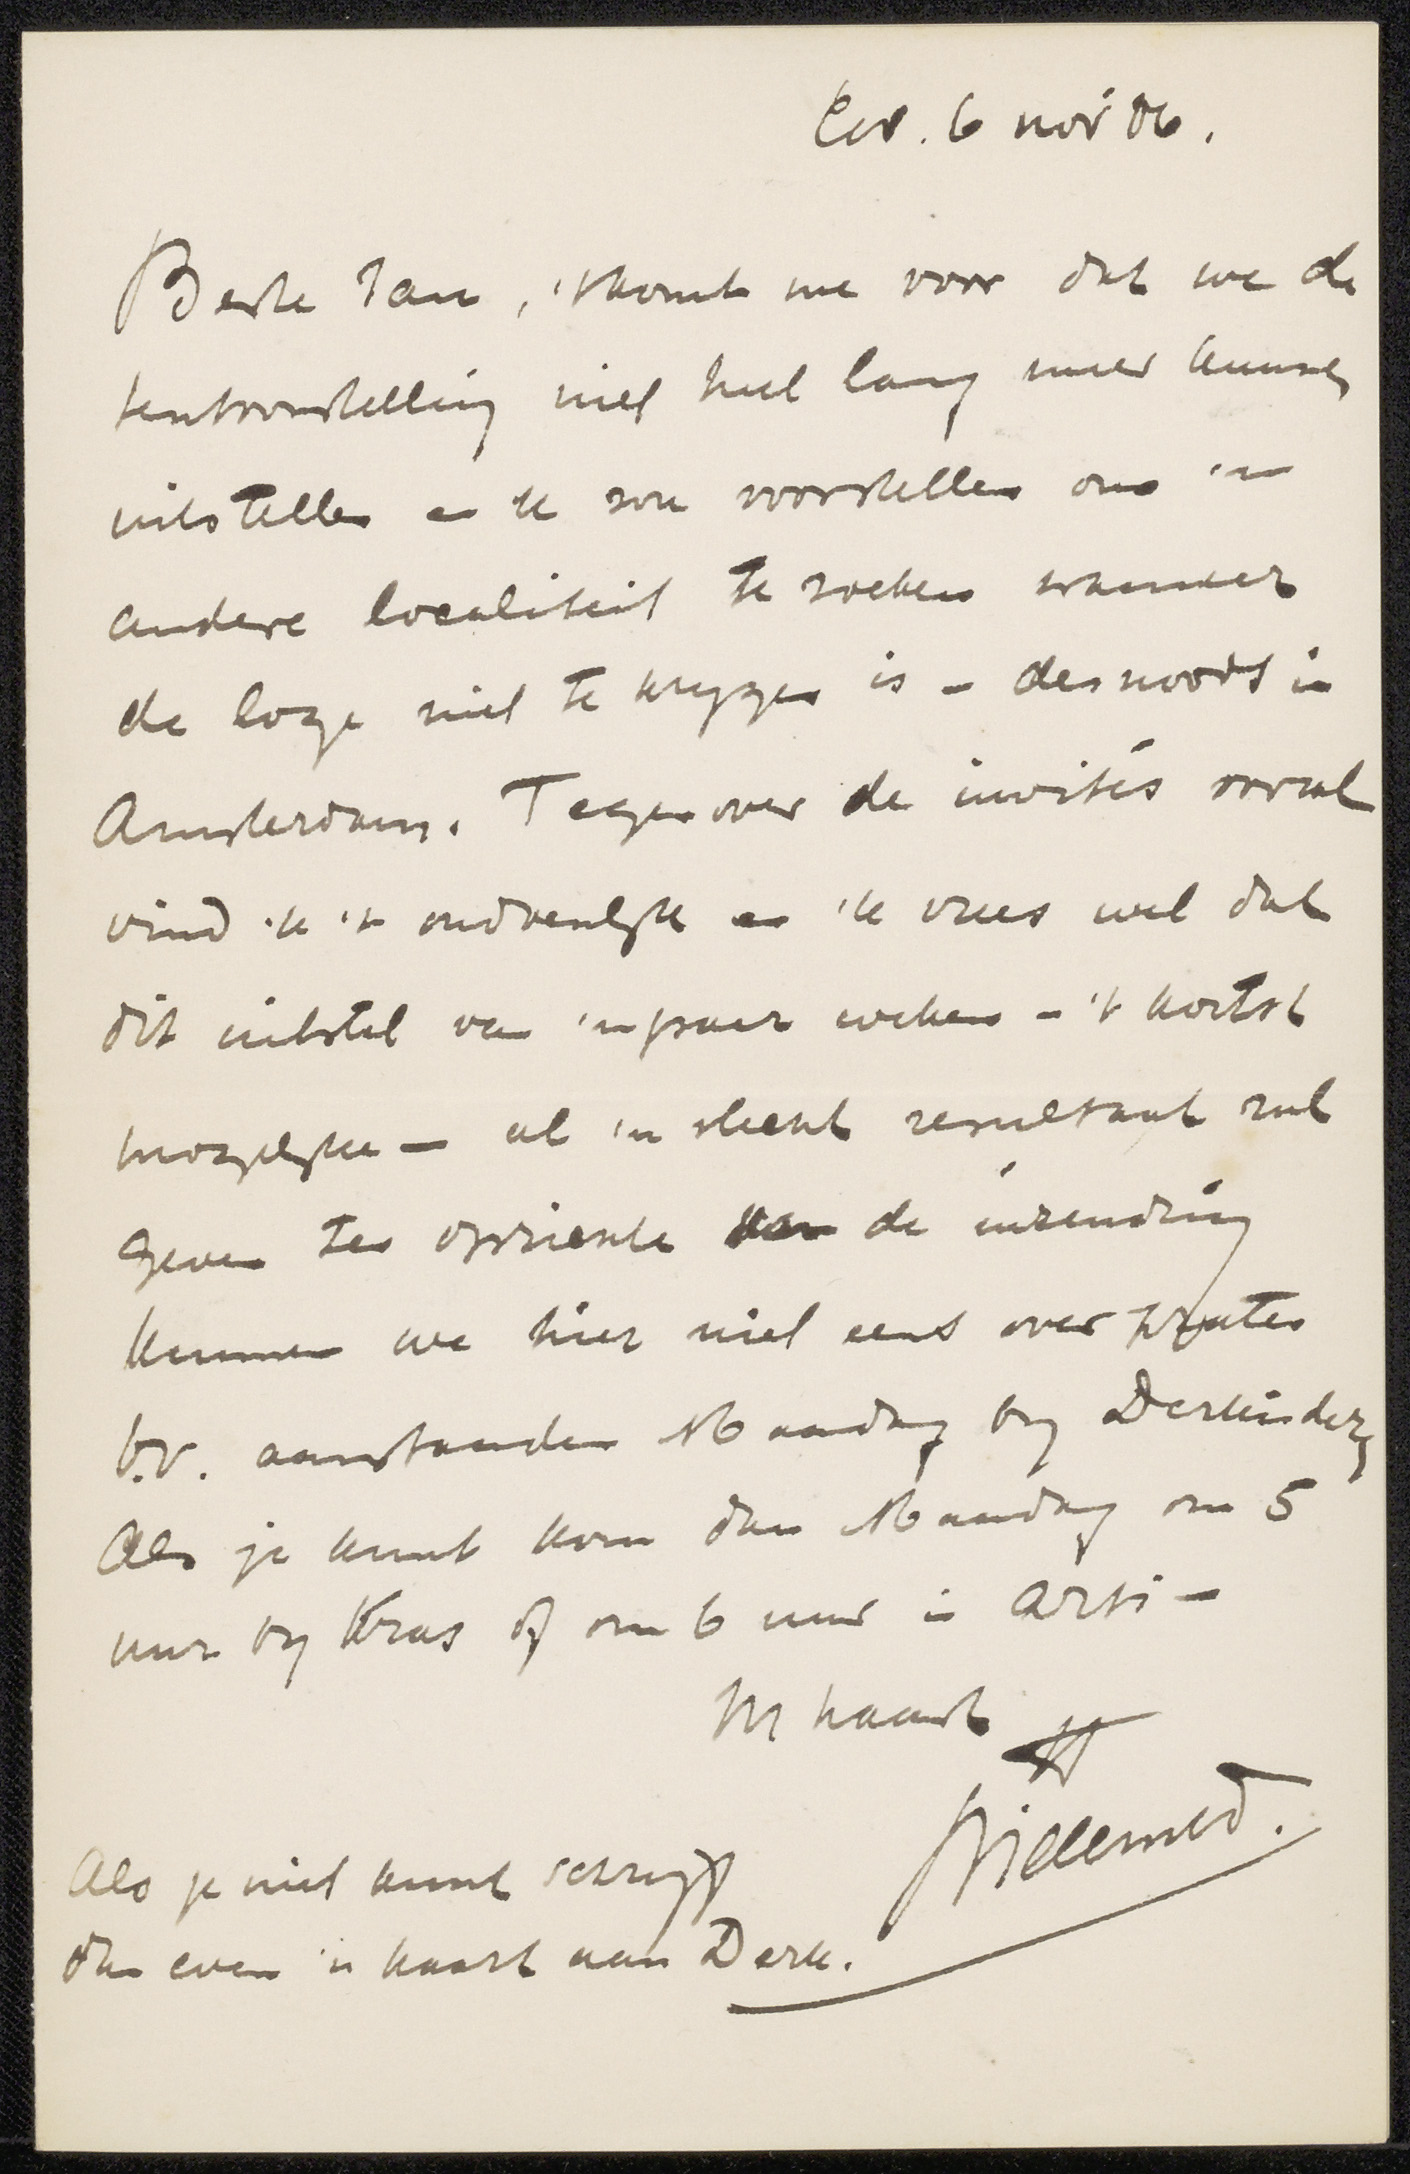 6 nov 06.
Beste Jan, 't komt me voor dat we de
tentoonstelling niet heel lang meer kunnen
uitstellen en ik zou voorstellen om 'n
andere localiteit te zoeken wanneer
de loge niet te krygen is – desnoods in
Amsterdam. Tegenover de invités vooral
vind ik 't onduidelyk en 'k vrees wel dat
dit uitstel van 'n paar weken – 't kortst
mogelyke – al 'n slecht resultaat zal
geven ten opzichte van de inzending
kunnen we hier niet eens over praten
b.v. aanstaanden Maandag by Derkinderen
Als je kunt kom dan Maandag om 5
uur by Kras of om 6 uur in Arti –
M haast
Als je niet kunt schryf
dan even 'n kaart aan Derk.